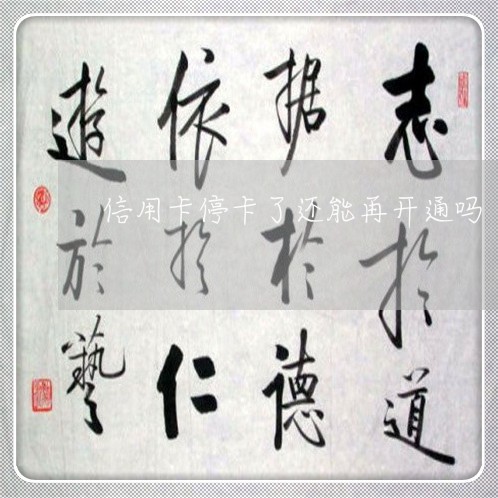 志於道
据於德
依於仁
遊於藝
信用卡停卡了还能再开通吗